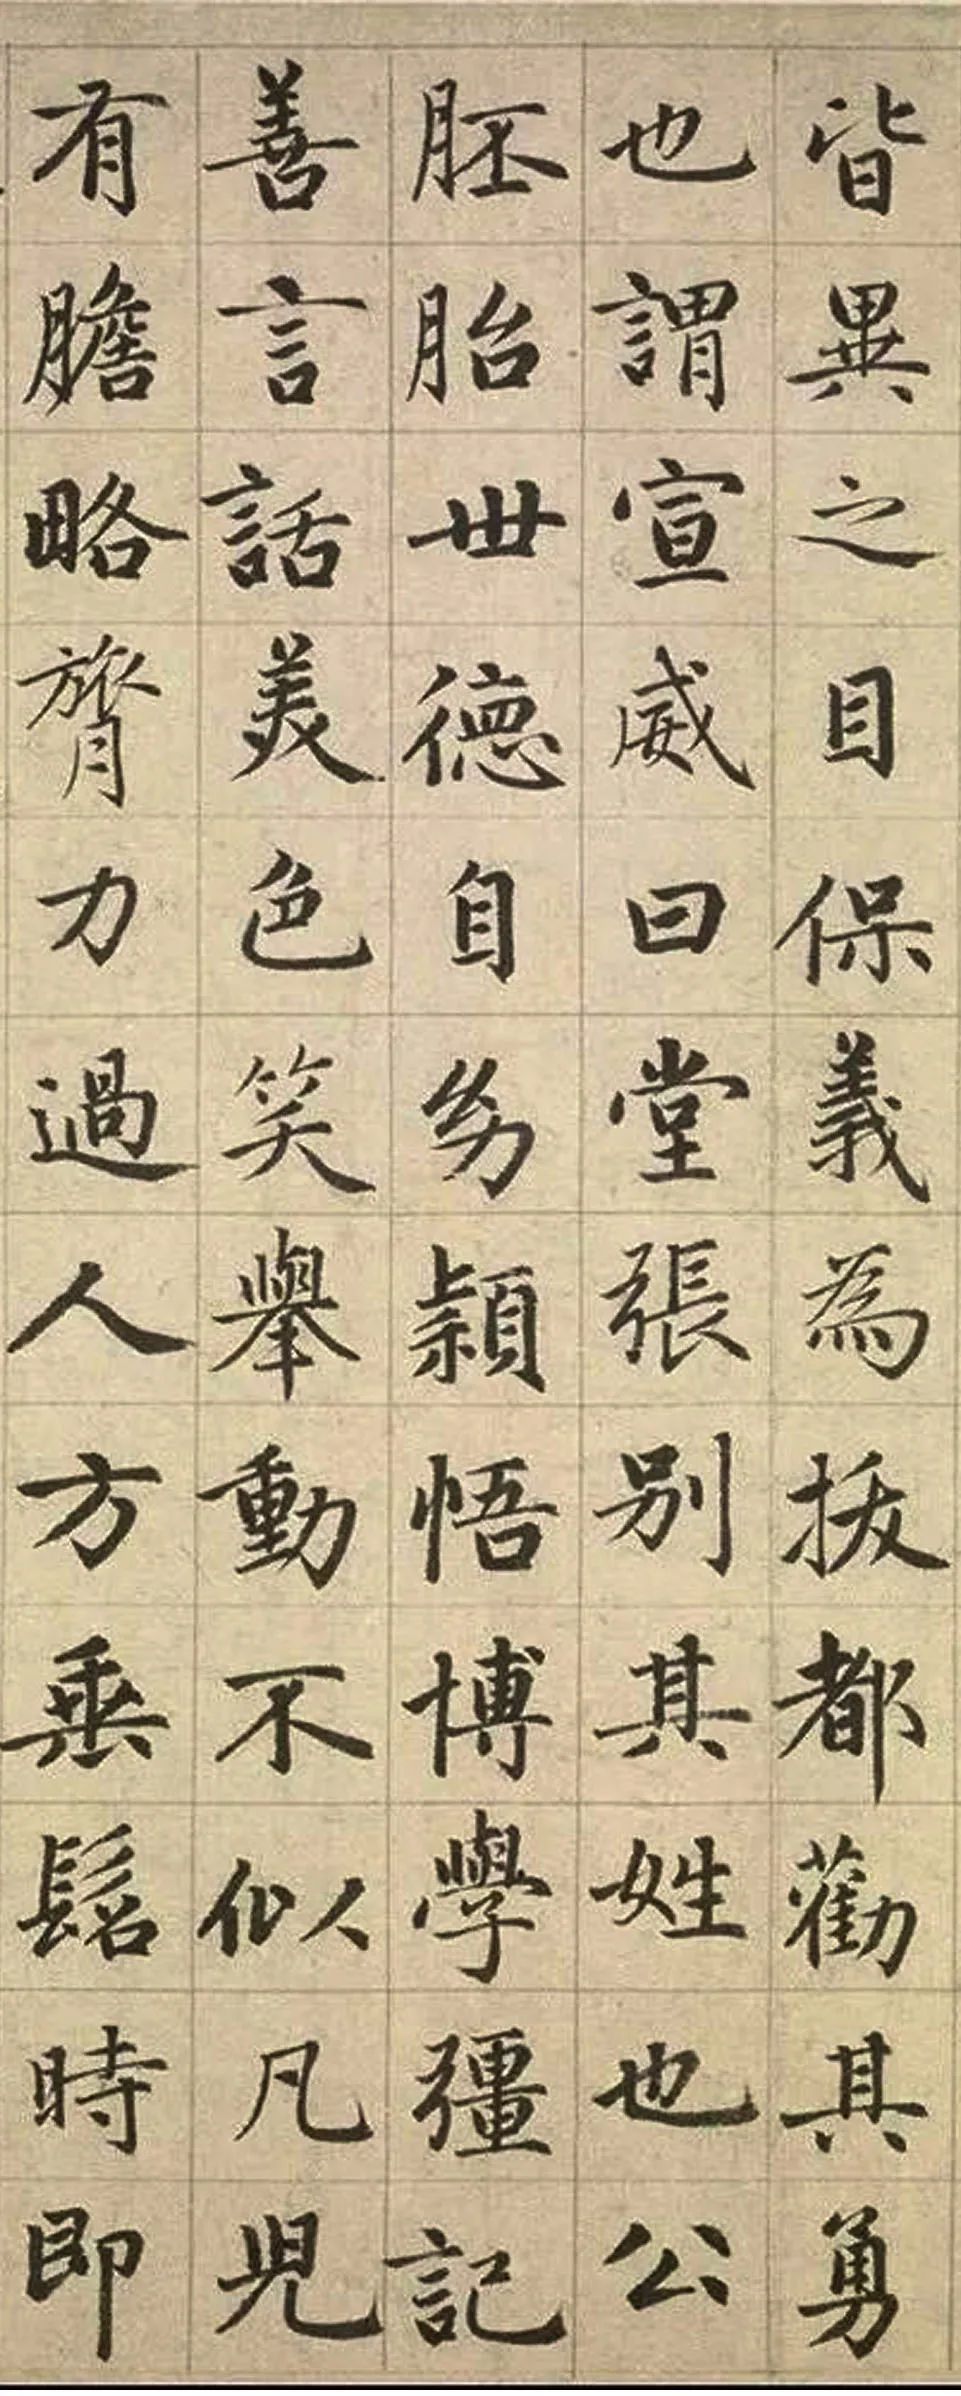 皆異之目保義為拔都勸其勇
也謂宣威曰堂張別其姓也公
胚胎世德自幼穎悟博學彊記
善言話美色笑舉動不似凡兒
有膽略膂力過人方垂髫時即